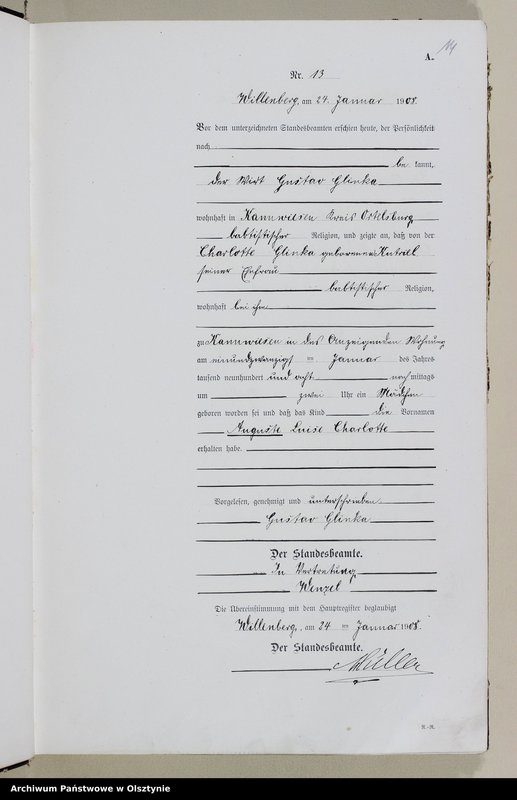 14
A.
Nr. 13
Willenberg, am 24. Januar 1908.
Vor dem unterzeichneten Standesbeamten erschien heute, der Persönlichkeit
nach
be kannt,
der Wirt Gustav Glinka
wohnhaft in Kannwiesen Kreis Ortelsburg
babtistischer Religion, und zeigte an, daß von der
Charlotte Glinka geborenen
seiner Ehefrau
babtistischer Religion,
wohnhaft bei ihm
zu Kannwiesen in des Anzeigenden Wohnung
am einundzwanzigst en Januar des Jahres
tausend neunhundert und acht nach mittags
um zwei Uhr ein Mädchen
geboren worden sei und daß das Kind die Vornamen
Auguste Luise Charlotte
erhalten habe.
Vorgelesen, genehmigt und unterschrieben.
Gustav Glinka
Der Standesbeamte.
In Vertretung
Wenzel
Die Übereinstimmung mit dem Hauptregister beglaubigt
Willenberg, am 24 ten Januar 1908.
Der Standesbeamte.
Müller
Archiwum Państwowe w Olsztynie